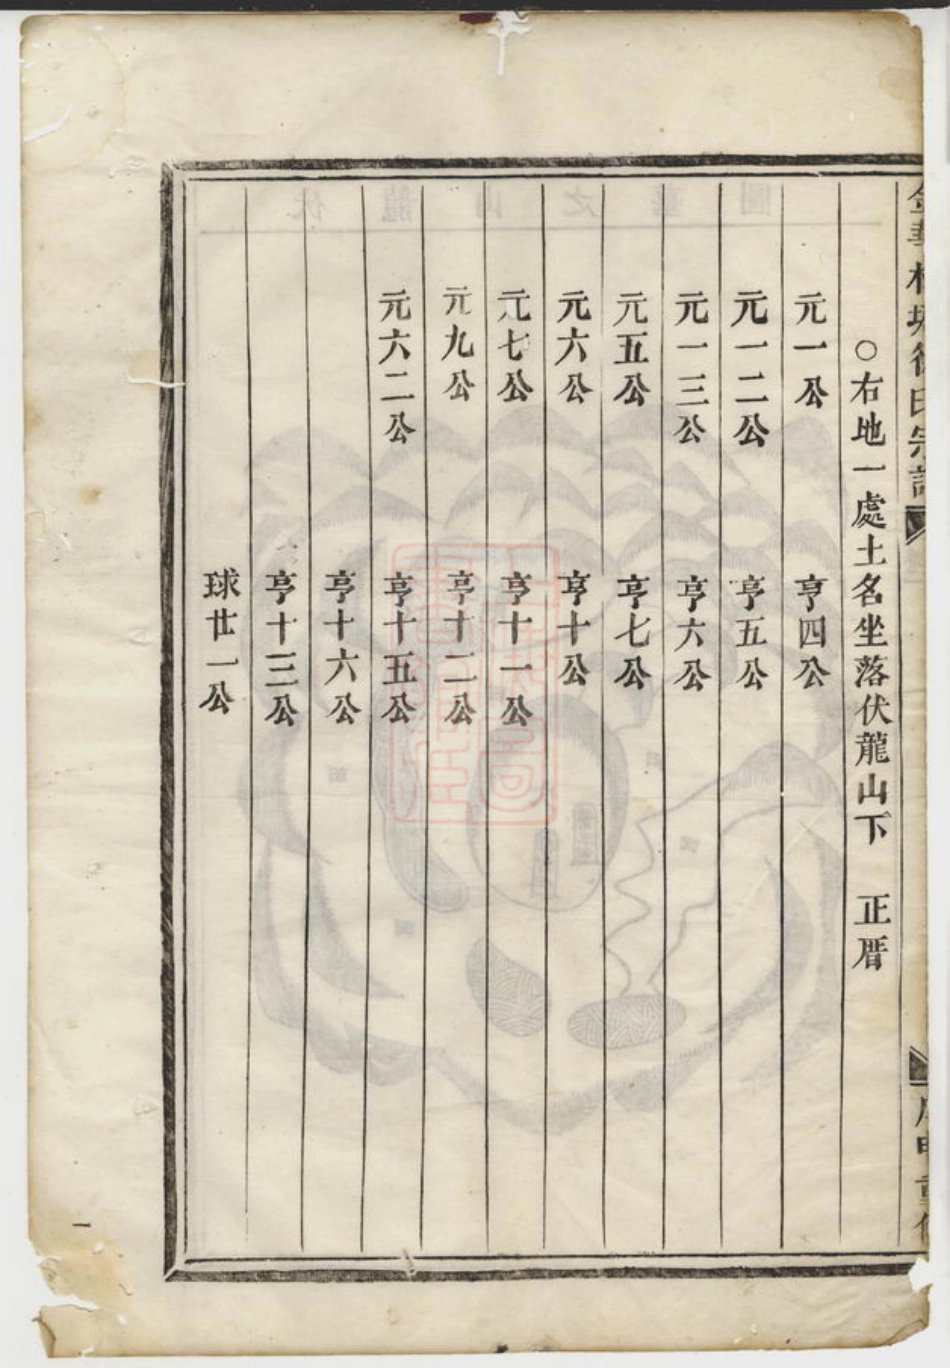 ○右地一處土名坐落伏龍山下 正厝
元一公 亨四公
元一二公 亨五公
元一三公 亨六公
元五公 亨七公
元六公 亨十公
元七公 亨十一公
元九公 亨十二公
元六二公 亨十五公
亨十六公
亨十三公
球廿一公